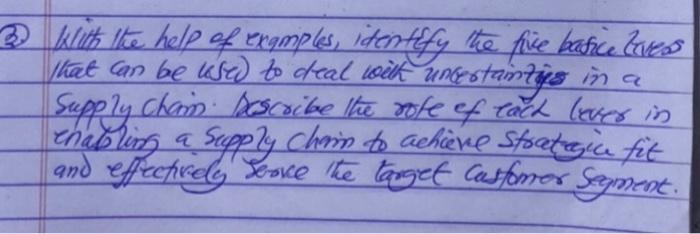 ③ With the help of examples, identify the five basic levers
that can be used to deal with uncertainties in a
Supply chain. Describe the role of each lever in
enabling a Supply Chain to achieve Strategic fit
and effectively Serve the target Customer Segment.